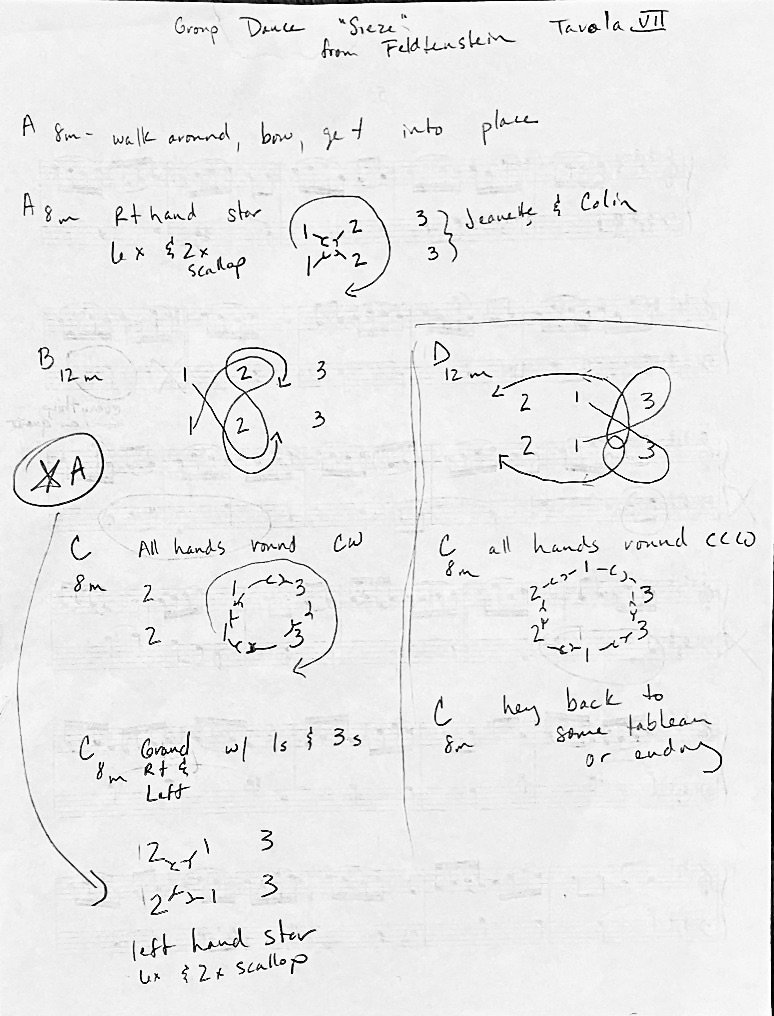 Group Dance "Sieze"
from Feldtenstein Tavola VII
A 8m - walk around, bow, get into place
A 8m Rt hand star
6x & 2x
scallop
1 2
1 2
3 } Jeanette & Colin
3
B 12m 1 2 3
1 2 3
A
C All hands round CW
8m 2 1 3
2 1 3
C Grand w/ 1s & 3s
8m Rt &
Left
2 1 3
2 1 3
left hand star
6x & 2x scallop
D 12m
2 1 3
2 1 3
C all hands round CCW
8m 2 1 3
2 1 3
C hey back to
8m some tableau
or ending